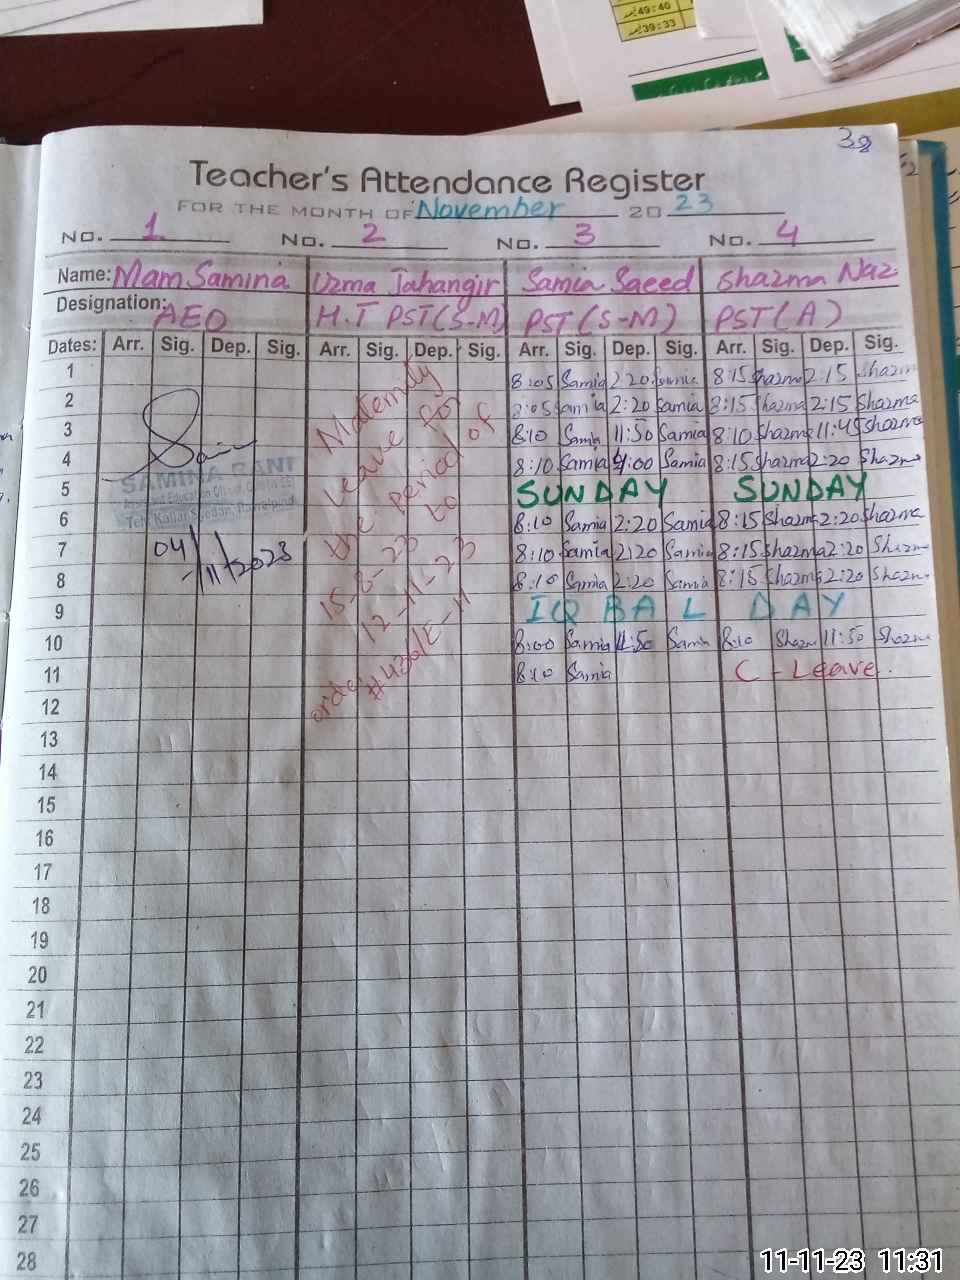 49:40
39:33
38
Teacher's Attendance Register
FOR THE MONTH OF November 20 23
No. 1 No. 2 No. 3 No. 4
Name: Mam Samina Uzma Jahangir Samia Saeed Shazma Naz
Designation: AEO H.T PST(S-M) PST(S-M) PST(A)
Dates: Arr. Sig. Dep. Sig. Arr. Sig. Dep. Sig. Arr. Sig. Dep. Sig. Arr. Sig. Dep. Sig.
1 8:05 Samia 2:20 Samia 8:15 Shazma 2:15 Shazma
2 8:05 Samia 2:20 Samia 8:15 Shazma 2:15 Shazma
3 8:10 Samia 11:50 Samia 8:10 Shazma 11:45 Shazma
4 8:10 Samia 4:00 Samia 8:15 Shazma 2:20 Shazma
5 SUNDAY SUNDAY
6 8:10 Samia 2:20 Samia 8:15 Shazma 2:20 Shazma
7 8:10 Samia 2:20 Samia 8:15 Shazma 2:20 Shazma
8 8:10 Samia 2:20 Samia 8:15 Shazma 2:20 Shazma
9 IQBAL DAY
10 8:00 Samia 11:50 Samia 8:10 Shazm 11:50 Shazm
11 8:10 Samia C-Leave.
12
13
14
15
16
17
18
19
20
21
22
23
24
25
26
27
28
SAMINA RANI
Education Officer
Teh: Kallar Syedan, Rawalpindi
04/11/2023
Maternity
Leave for
the period of
15-8-23 to
12-11-23
order #430/E-11
11-11-23 11:31